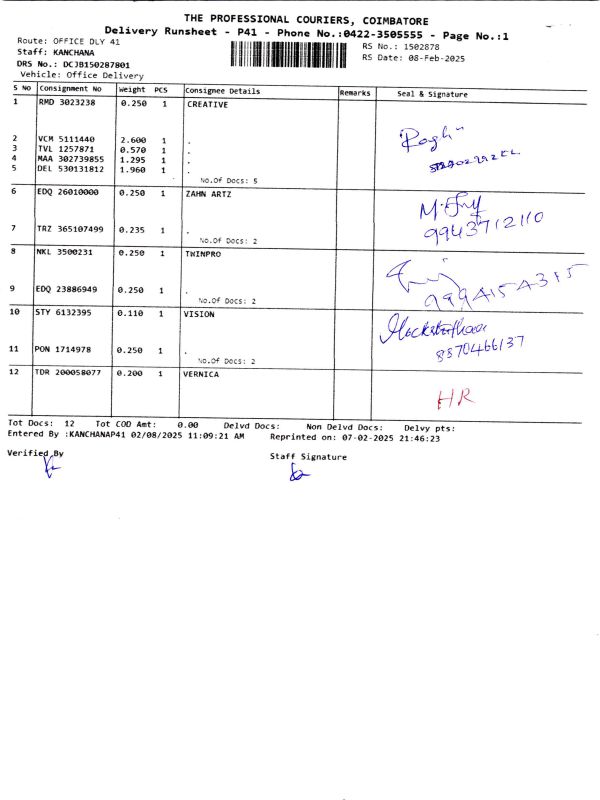 THE PROFESSIONAL COURIERS, COIMBATORE
Delivery Runsheet - P41 - Phone No.:0422-3505555 - Page No.:1
Route: OFFICE DLY 41
RS No.: 1502878
Staff: KANCHANA
RS Date: 08-Feb-2025
DRS No.: DCJB150287801
Vehicle: Office Delivery
S No Consignment No Weight PCS Consignee Details Remarks Seal & Signature
1 RMD 3023238 0.250 1 CREATIVE
2 VCM 5111440 2.600 1 .
3 TVL 1257871 0.570 1 .
4 MAA 302739855 1.295 1 .
5 DEL 530131812 1.960 1 .
No.Of Docs: 5
6 EDQ 26010000 0.250 1 ZAHN ARTZ
9943712110
7 TRZ 365107499 0.235 1 .
No.Of Docs: 2
8 NKL 3500231 0.250 1 TWINPRO
9994154315
9 EDQ 23886949 0.250 1 .
No.Of Docs: 2
10 STY 6132395 0.110 1 VISION
8870466137
11 PON 1714978 0.250 1 .
No.Of Docs: 2
12 TDR 200058077 0.200 1 VERNICA
HR
Tot Docs: 12 Tot COD Amt: 0.00 Delvd Docs: Non Delvd Docs: Delvy pts:
Entered By :KANCHANAP41 02/08/2025 11:09:21 AM Reprinted on: 07-02-2025 21:46:23
Verified By
Staff Signature